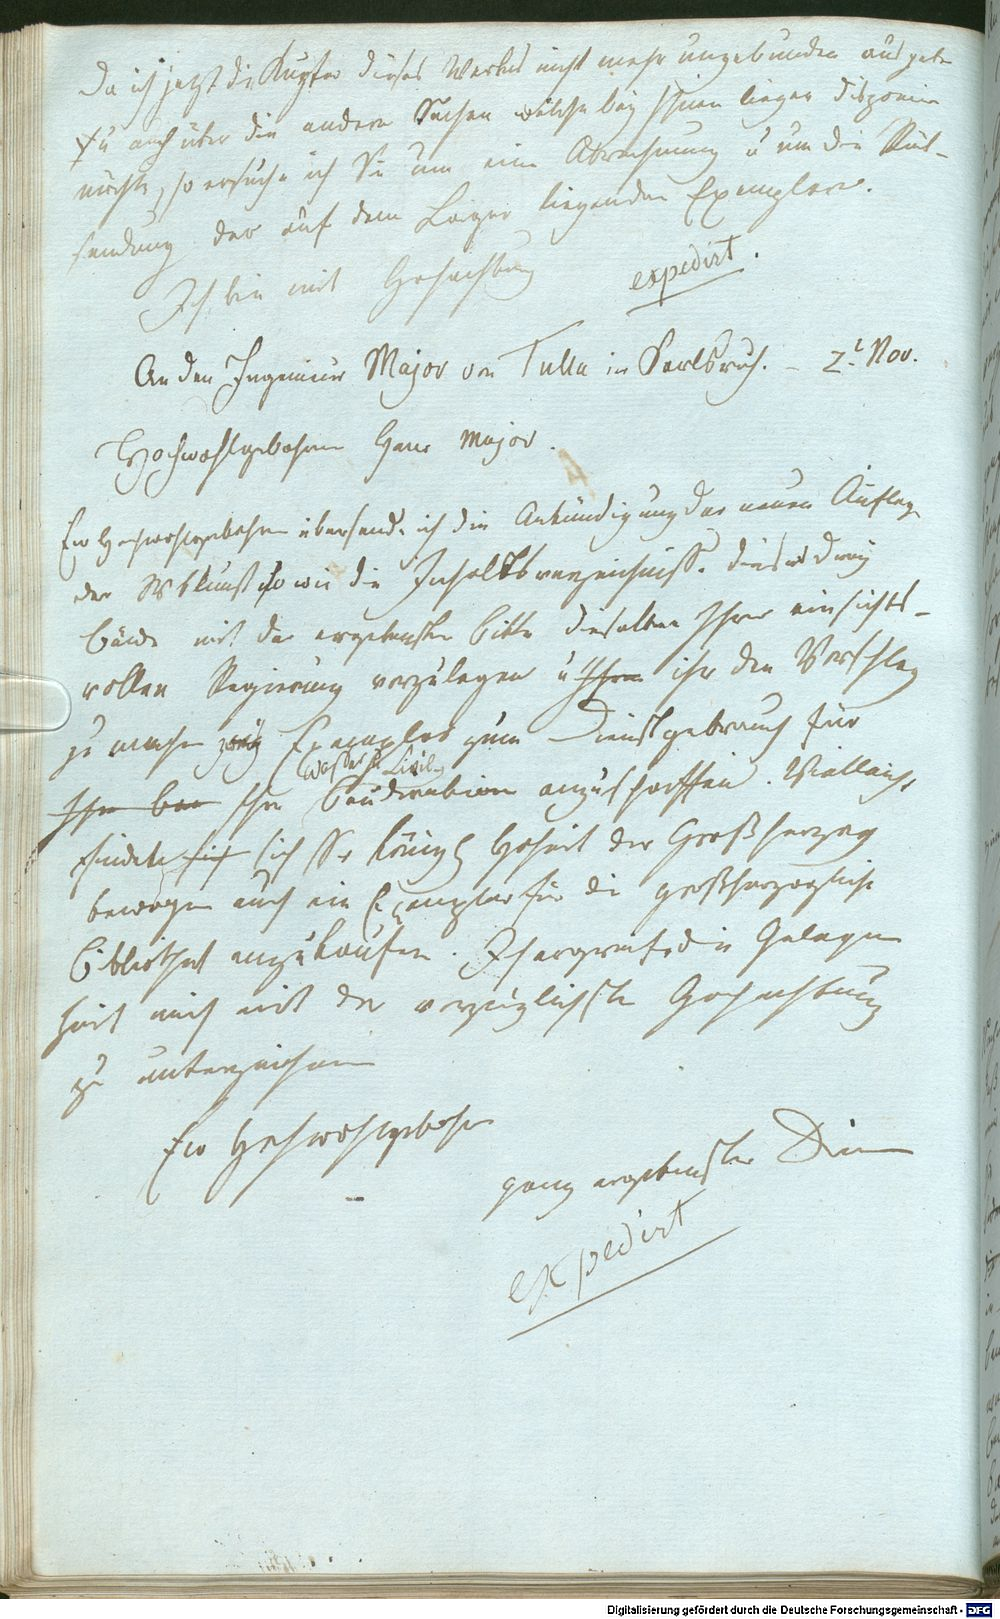 Da ich jetzt die Kupfer dieses Werkes nicht mehr ungebunden ausgebe
u auch über die andern Sachen welche bey Ihnen liegen disponiren
möchte, so ersuche ich Sie um eine Abrechnung u um die Rük-
sendung der auf dem Lager liegenden Exemplare.
Ich bin mit Hochachtung expedirt.
An den Ingenieur Major von Tulla in Carlsruh. – 2t Nov.
Hochwohlgebohrner Herr Major.
Ew Hochwohlgebohren übersende ich die Ankündigung der neuen Auflage
der Wbkunst so wie die Inhaltsverzeichnisse dieser drey
Bände mit der ergebensten Bitte dieselben Ihrer einsichts-
vollen Regierung vorzulegen u Ihrem ihr den Vorschlag
zu machen Exemplar zum Dienstgebrauch für
Wasser u Civil-
Ihre Bau Ihre Baudirektion anzuschaffen. Vielleicht
findete sich sich Se Königl Hoheit der Großherzog
bewogen auch ein Exemplar für die großherzogliche
Bibliothek anzukaufen. Ich ergreife die Gelegen
heit mich mit der vorzüglichsten Hochachtung
zu unterzeichnen
Ew Hochwohlgebohren
ganz ergebenster Diener
expedirt
Digitalisierung gefördert durch die Deutsche Forschungsgemeinschaft - DFG